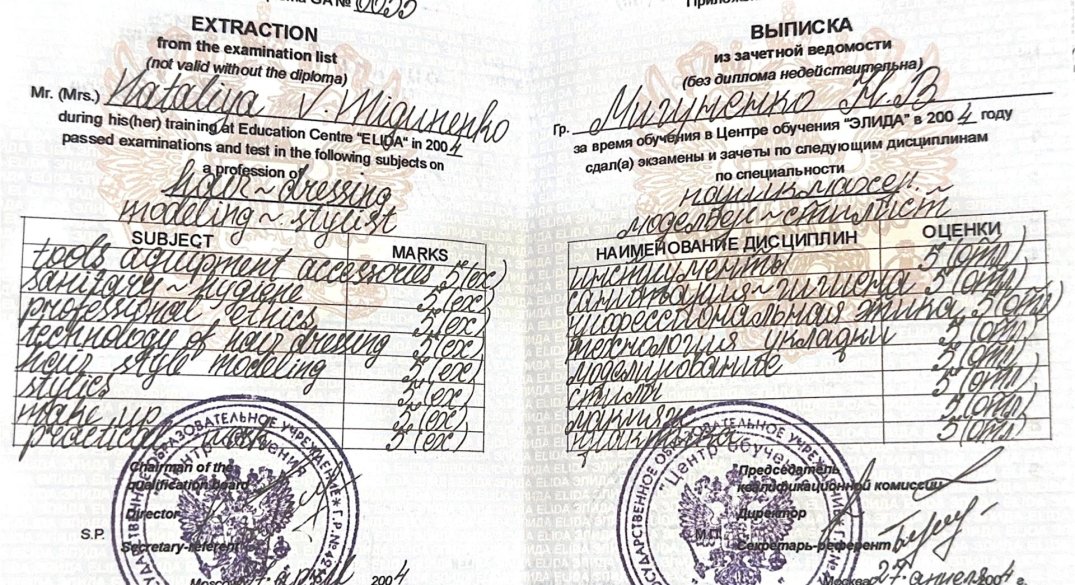 GA № 0055
EXTRACTION
from the examination list
(not valid without the diploma)
Mr. (Mrs.) Nataliya V. Migunenko
during his(her) training at Education Centre "ELIDA" in 2004
passed examinations and test in the following subjects on
a profession of
hair~dressing
modeling~stylist
SUBJECT MARKS
tools aquipment accessories 5(ex)
sanitary~hygiene 5(ex)
professional ethics 5(ex)
technology of hair dressing 5(ex)
hair style modeling 5(ex)
stylics 5(ex)
make up 5(ex)
practical 5(ex)
Chairman of the
qualification board
Director
S.P.
Secretary-referent
Moscow 2004
ВЫПИСКА
из зачетной ведомости
(без диплома недействительна)
Гр. Мигуненко Н.В
за время обучения в Центре обучения "ЭЛИДА" в 2004 году
сдал(а) экзамены и зачеты по следующим дисциплинам
по специальности
парикмахер.
модельер~стилист
НАИМЕНОВАНИЕ ДИСЦИПЛИН ОЦЕНКИ
инструменты 5(отл)
санитария~гигиена 5(отл)
профессиональная этика 5(отл)
технология укладки 5(отл)
моделирование 5(отл)
стили 5(отл)
макияж 5(отл)
практика 5(отл)
Председатель
квалификационной комиссии
Директор
М.П.
Секретарь-референт
Москва 27 апреля 04